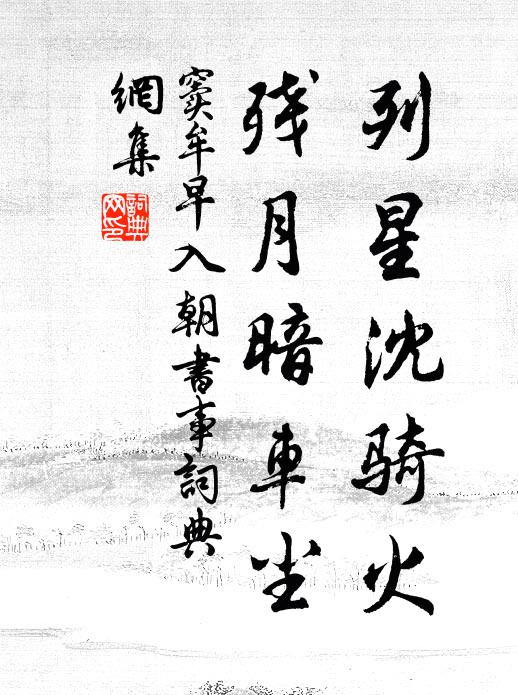 列星沈骑火
残月暗车尘
窦牟早入朝書事詞典
網集
詞典
网印